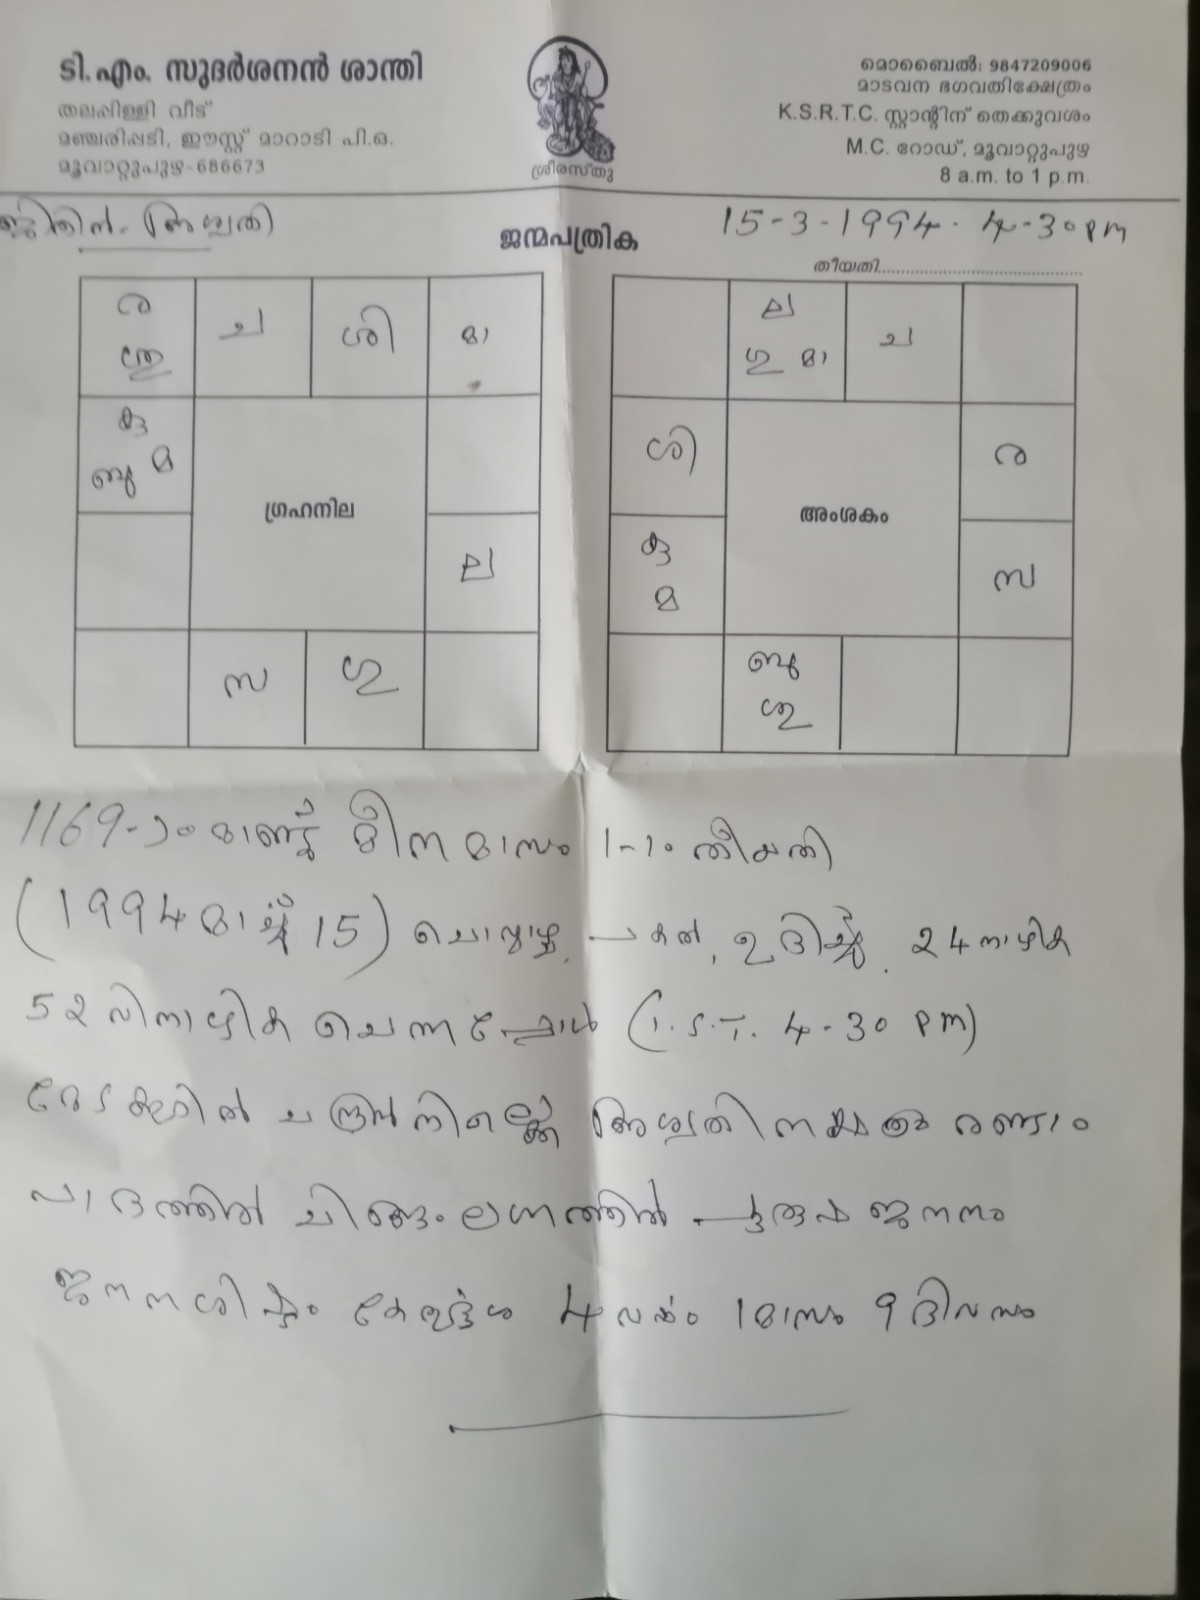 ടി.എം. സുദർശനൻ ശാന്തി
തലപ്പിള്ളി വീട്
മഞ്ചരിപ്പടി, ഈസ്റ്റ് മാറാടി പി.ഒ.
മൂവാറ്റുപുഴ-686673
ശ്രീരസ്തു
മൊബൈൽ: 9847209006
മാടവന ഭഗവതിക്ഷേത്രം
K.S.R.T.C. സ്റ്റാന്റിന് തെക്കുവശം
M.C. റോഡ്, മൂവാറ്റുപുഴ
8 a.m. to 1 p.m.
ജിതിൻ. അശ്വതി
ജന്മപത്രിക
15-3-1994. 4-30 pm
തീയതി
ര ച ശി മാ
കു
ബു മ
ഗ്രഹനില
ല
സ ഗു
ല
ഗു മാ ച
ശി ര
അംശകം
കു
മ സ
ബു
ശു
1169-ാം മാണ്ട് മീനമാസം 1-ാം തീയതി
(1994 മാർച്ച് 15) ചൊവ്വാഴ്ച, പകൽ, ഉദിച്ച് 24 നാഴിക
52 വിനാഴിക ചെന്നപ്പോൾ (I.S.T. 4-30 pm)
മേടക്കൂറിൽ ചന്ദ്രൻ നില്ക്കെ അശ്വതി നക്ഷത്രം രണ്ടാം
പാദത്തിൽ ചിങ്ങം ലഗ്നത്തിൽ പുരുഷ ജനനം
ജനന ശിഷ്ടം കേതുർദശ 4 വർഷം 1 മാസം 9 ദിവസം